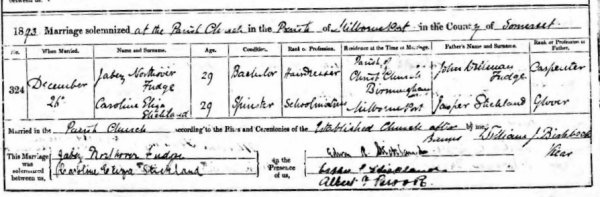 1893 Marriage solemnized at the Parish Church in the Parish of Milborne Port in the County of Somerset
No. When Married. Name and Surname. Age. Condition. Rank or Profession. Residence at the Time of Marriage. Father's Name and Surname. Rank or Profession of Father
324 December 26 Jabez Northover Fudge 29 Bachelor Hairdresser Parish of Christ Church Birmingham John Fudge Carpenter
Caroline Eliza Stickland 29 Spinster Schoolmistress Milborne Port Jasper Stickland Glover
Married in the Parish Church according to the Rites and Ceremonies of the Established Church after Banns by me, William J Vicar
This Marriage was solemnized between us, Jabez Northover Fudge
Caroline Eliza Stickland
in the Presence of us, Stickland
Stickland
Albert